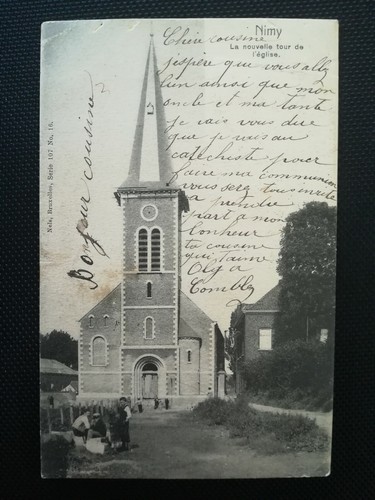 Nimy
La nouvelle tour de
l'église.
Chère cousine
j'espère que vous allez
bien ainsi que mon
oncle et ma tante
je vais vous dire
que je vais au
catéchiste pour
faire ma communion
vous serez tous invité
a prendre
part a mon
bonheur
ta cousine
qui t'aime
Olga
Comblez
Bonjour cousine
Nels, Bruxelles, Serie 107 No. 16.